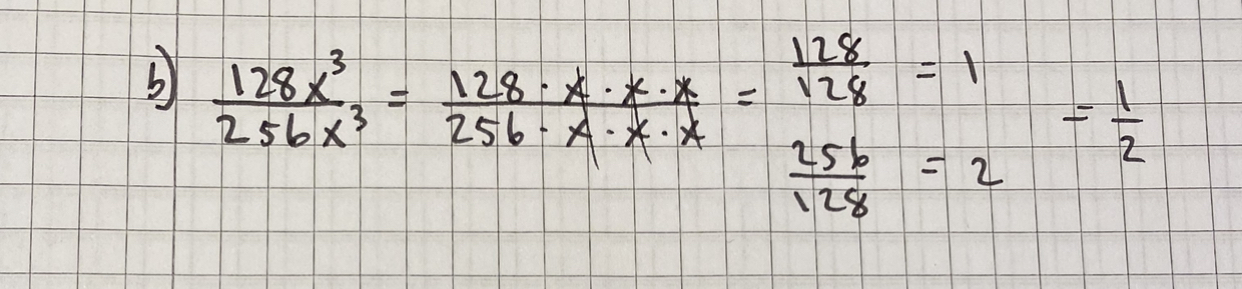 b) 128x³/256x³ = 128·x·x·x/256·x·x·x = 128/128 = 1
256/128 = 2
= 1/2